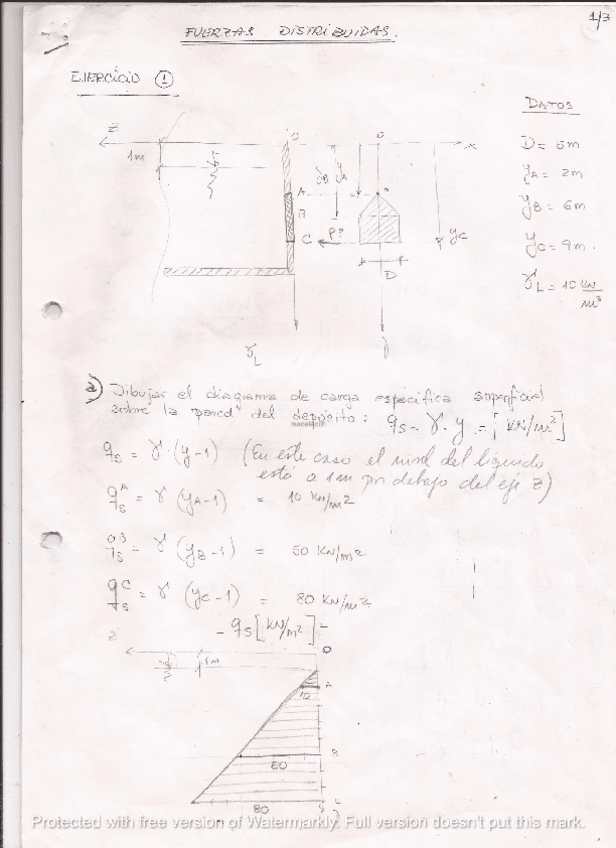 1/3
FUERZAS DISTRIBUIDAS.
EJERCICIO ①
DATOS
D = 5m
yA = 2m
yB = 6m
yC = 9m.
γL = 10 KN/m³
Z
1m
O
O
x
A
B
C
yB
yA
P?
yC
D
γL
a) Dibujar el diagrama de carga especifica superficial
sobre la pared del depósito: qs = γ · y = [KN/m²]
qs = γ · (y-1) (En este caso el nivel del liquido
está a 1m por debajo del eje Z)
qsA = γ (yA-1) = 10 KN/m²
qsB = γ (yB-1) = 50 KN/m²
qsC = γ (yC-1) = 80 KN/m²
- qs [KN/m²]
z
O
1m
A
10
B
80
Protected with free version of Watermarkly. Full version doesn't put this mark.